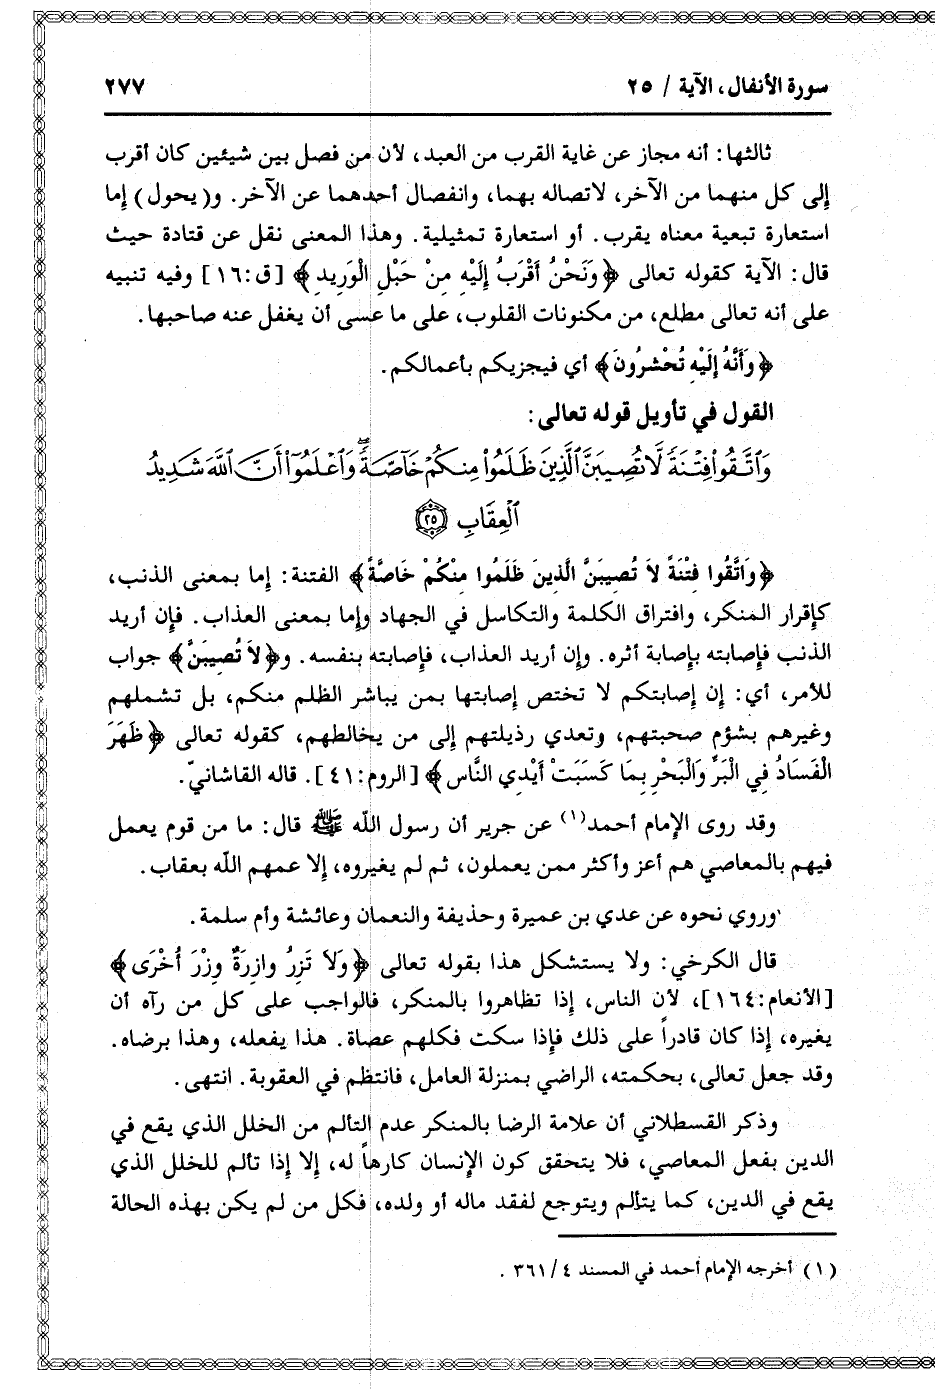 سورة الأنفال، الآية / ٢٥
٢٧٧
ثالثها: أنه مجاز عن غاية القرب من العبد، لأن من فصل بين شيئين كان أقرب
إلى كل منهما من الآخر، لاتصاله بهما، وانفصال أحدهما عن الآخر. و(يحول) إما
استعارة تبعية معناه يقرب. أو استعارة تمثيلية. وهذا المعنى نقل عن قتادة حيث
قال: الآية كقوله تعالى ﴿وَنَحْنُ أَقْرَبُ إِلَيْهِ مِنْ حَبْلِ الْوَرِيدِ﴾ [ق:١٦] وفيه تنبيه
على أنه تعالى مطلع، من مكنونات القلوب، على ما عسى أن يغفل عنه صاحبها.
﴿وَأَنَّهُ إِلَيْهِ تُحْشَرُونَ﴾ أي فيجزيكم بأعمالكم.
القول في تأويل قوله تعالى:
وَاتَّقُوا۟ فِتْنَةً لَّا تُصِيبَنَّ الَّذِينَ ظَلَمُوا۟ مِنكُمْ خَآصَّةً ۖ وَاعْلَمُوٓا۟ أَنَّ اللَّهَ شَدِيدُ
الْعِقَابِ ٢٥
﴿وَاتَّقُوا فِتْنَةً لاَ تُصِيبَنَّ الَّذِينَ ظَلَمُوا مِنْكُمْ خَاصَّةً﴾ الفتنة: إما بمعنى الذنب،
كإقرار المنكر، وافتراق الكلمة والتكاسل في الجهاد وإما بمعنى العذاب. فإن أريد
الذنب فإصابته بإصابة أثره. وإن أريد العذاب، فإصابته بنفسه. و﴿لاَ تُصِيبَنَّ﴾ جواب
للأمر، أي: إن إصابتكم لا تختص إصابتها بمن يباشر الظلم منكم، بل تشملهم
وغيرهم بشؤم صحبتهم، وتعدي رذيلتهم إلى من يخالطهم، كقوله تعالى ﴿ظَهَرَ
الْفَسَادُ فِي الْبَرِّ وَالْبَحْرِ بِمَا كَسَبَتْ أَيْدِي النَّاسِ﴾ [الروم:٤١]. قاله القاشانيّ.
وقد روى الإمام أحمد(١) عن جرير أن رسول الله ﷺ قال: ما من قوم يعمل
فيهم بالمعاصي هم أعز وأكثر ممن يعملون، ثم لم يغيروه، إلا عمهم الله بعقاب.
وروي نحوه عن عدي بن عميرة وحذيفة والنعمان وعائشة وأم سلمة.
قال الكرخي: ولا يستشكل هذا بقوله تعالى ﴿وَلاَ تَزِرُ وازِرَةٌ وِزْرَ أُخْرَى﴾
[الأنعام:١٦٤]، لأن الناس، إذا تظاهروا بالمنكر، فالواجب على كل من رآه أن
يغيره، إذا كان قادراً على ذلك فإذا سكت فكلهم عصاة. هذا يفعله، وهذا برضاه.
وقد جعل تعالى، بحكمته، الراضي بمنزلة العامل، فانتظم في العقوبة. انتهى.
وذكر القسطلاني أن علامة الرضا بالمنكر عدم التألم من الخلل الذي يقع في
الدين بفعل المعاصي، فلا يتحقق كون الإنسان كارهاً له، إلا إذا تألم للخلل الذي
يقع في الدين، كما يتألم ويتوجع لفقد ماله أو ولده، فكل من لم يكن بهذه الحالة
(١) أخرجه الإمام أحمد في المسند ٤/ ٣٦١.